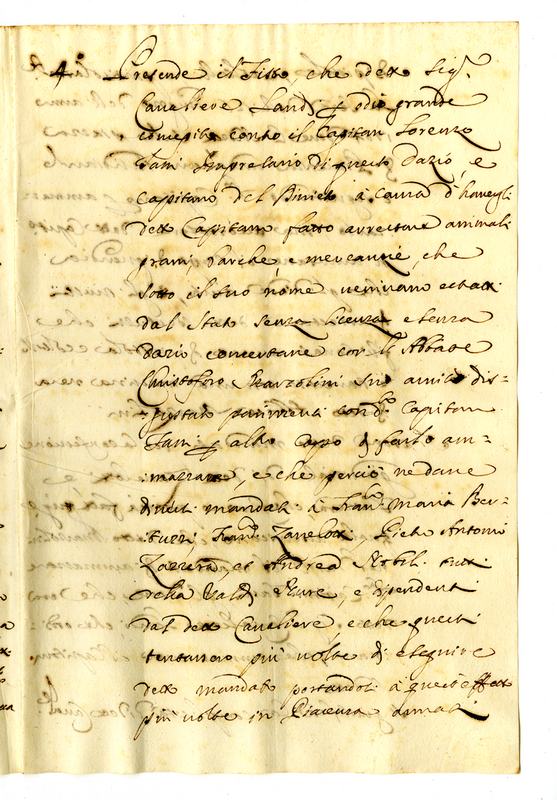 4. Pretende il Fisco che detto Sig.r
Cavaliere Landi p odio grande
concepito contro il Capitan Lorenzo
Fani Impresario di questo Dazio, e
Capitano del Divieto à causa d'havergli
detto Capitano fatto arrestare animali
grani, barche, e mercanzie, che
sotto il suo nome venivano estratti
dal Stato senza licenza e senza
Dazio concertasse con l'Abbate
Christoforo Marzolini suo amico dis-
-gustato parimenti con d.o Capitan
Fani p altro Capo di farlo am-
-mazzare, e che perciò ne dasse
diversi mandati à Fran.co Maria Ber-
Fran.co Zanelotti, Pietro Antonio
et Andrea Nobili tutti
della Val di Nure, e dipendenti
dal detto Cavaliere e che questi
tentassero più volte di eseguire
detto mandato portandosi à quest'effetto
più volte in Piacenza armati